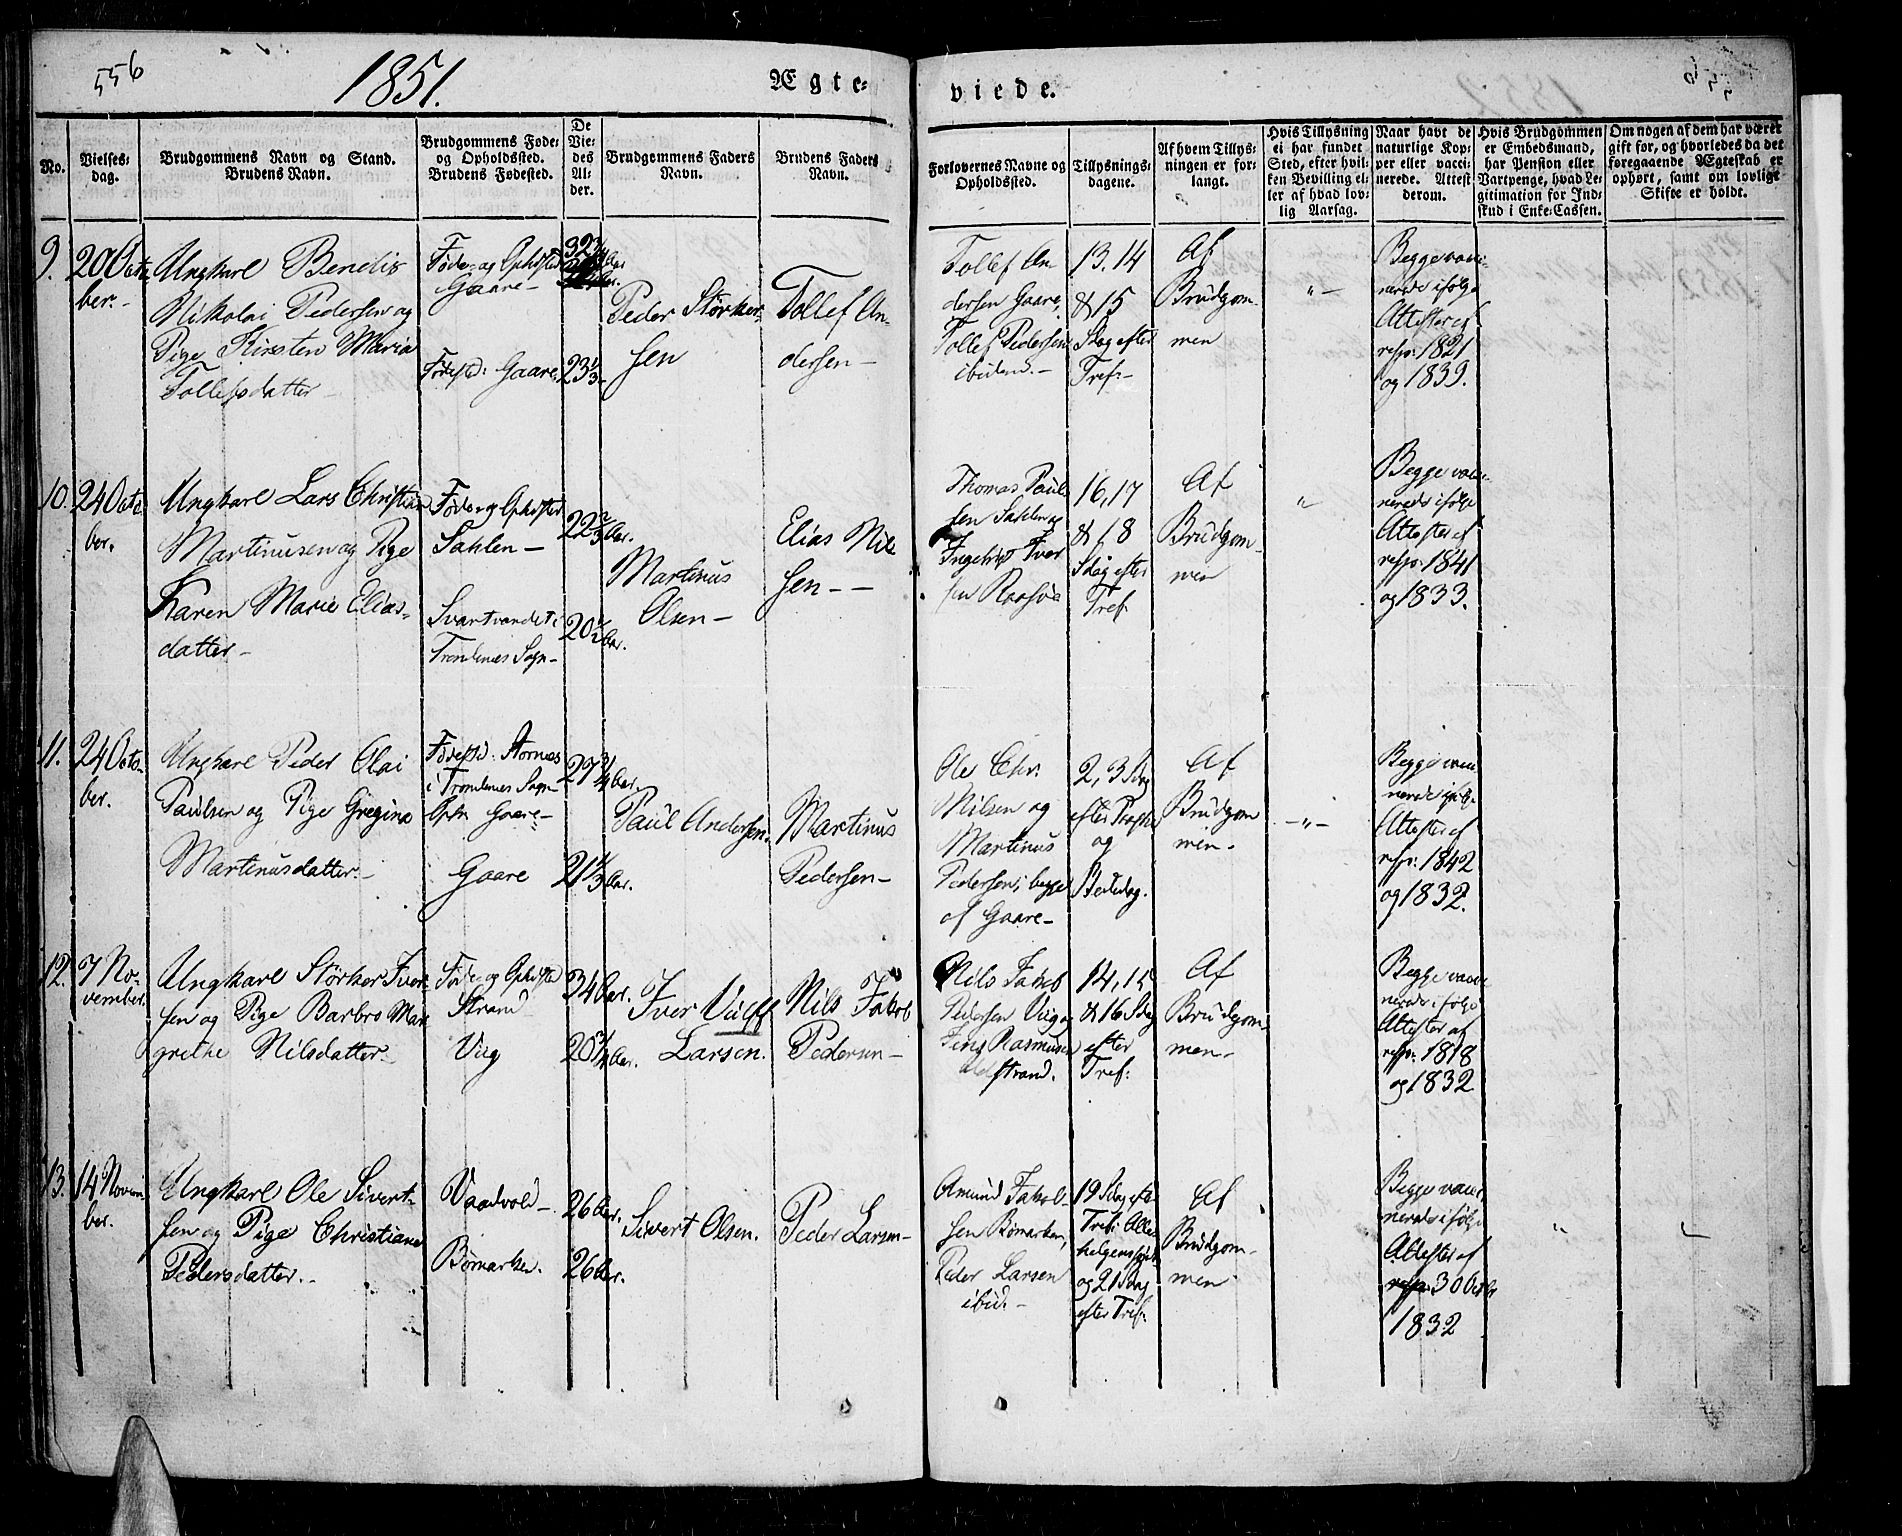 556
1851.
Ægte-
viede.
No.
Vielses-
dag.
Brudgommens Navn og Stand.
Brudens Navn.
Brudgommens Føde-
og Opholdssted.
Brudens Fødested.
De
Vie-
des
Al-
der.
Brudgommens Faders
Navn.
Brudens Faders
Navn.
Forlovernes Navne og
Opholdssted.
Tillysnings-
dagene.
Af hvem Tillys-
ningen er for-
langt.
Hvis Tillysning
ei har fundet
Sted, efter hvil-
ken Bevilling el-
ler af hvad lov-
lig Aarsag.
Naar havt de
naturlige Kop-
per eller vacci-
nerede. Attest
derom.
Hvis Brudgommen
er Embedsmand,
har Pension eller
Vartpenge, hvad Le-
gitimation for Ind-
skud i Enke-Cassen.
Om nogen af dem har været
gift før, og hvorledes da det
foregaaende Ægteskab er
ophørt, samt om lovlige
Skifte er holdt.
9.
20 Octo-
ber.
Ungkarl Bendis
Nikolai Pedersen og
Pige Kirsten Maria
Tollefsdatter
Føde- og Ophsted
Gaare
Fødested: Gaare
23 1/3
Peder Størker-
sen
Tollef An-
dersen
Tollef An-
dersen Gaare,
Tollef Pedersen
ibidem.
13. 14
& 15
S. dag efter
Tref:
Af
Brudgom-
men
"
Begge vacci-
nerede ifølge
Attester af
resp: 1821
og 1839.
10.
24 Octo-
ber.
Ungkarl Lars Christian
Martinusen og Pige
Karen Marie Elias-
datter
Føde- og Ophsted
Sahlen
Svartvandet i
Trondenes Sogn
22 2/3 Aar.
20 1/2 Aar.
Martinus
Olsen
Elias Nil-
sen
Thomas Paul-
sen Sahlen og
16, 17
& 18
S dag efter
Tref.
Af
Brudgom-
men
"
Begge vacci-
nerede ifølge
Attester af
resp: 1841
og 1833.
11.
24 Octo-
ber.
Ungkarl Peder Olai
Paulsen og Pige Gregine
Martinusdatter
Fødested: Stornes
i Trondenes Sogn
Oph: Gaare
Gaare
27 3/4 Aar.
21 1/3 Aar.
Paul Andersen
Martinus
Pedersen
Ole Chr.
Nilsen og
Martinus
Pedersen, begge
af Gaare
2, 3 S dag
og
Bededag.
Af
Brudgom
men.
"
Begge vacci-
nerede ifølge
Attester af
resp: 1842
og 1832.
12.
7 No-
vember.
Ungkarl Størker Iver-
sen og Pige Barbro Mar-
grethe Nilsdatter
Føde- og Ophsted
Strand
Viig
34 Aar.
20 3/4 Aar.
Iver
Larsen.
Nils Jakob
Pedersen
Nils Jakob
Pedersen Viig og
Jens Rasmusen
Strand.
14, 15
& 16 S dag
efter
Tref:
Af
Brudgom-
men.
Begge vacci-
nerede ifølge
Attester af
resp: 1818
og 1832
13.
14 Novem-
ber.
Ungkarl Ole Sivert-
sen og Pige Christiane
Pedersdatter.
Vaadvold
Bømarken.
26 Aar.
26 Aar.
Sivert Olsen.
Peder Larsen
Amund Jakob-
sen Bømarken,
Peder Larsen
ibid.
19 S dag efter
Tref: Alle-
helgens
og 21 S dag
efter Tref:
Af
Brudgom-
men
Begge vacci-
nerede ifølge
Attester af
30 Octbr
1832